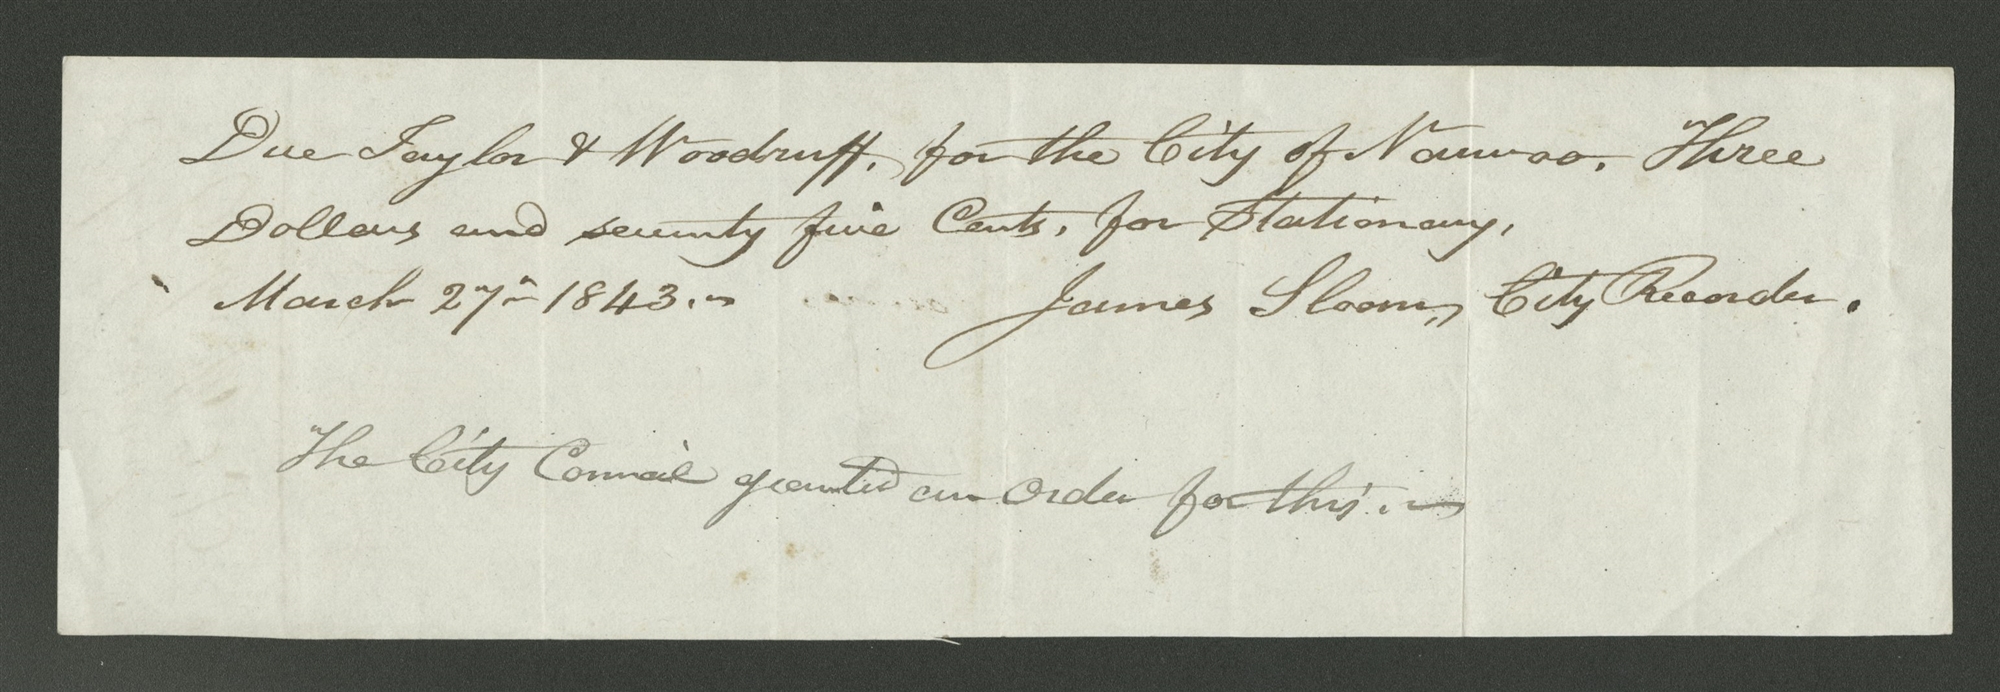 Due Taylor & Woodruff, for the City of Nauvoo, Three
Dollars and seventy five Cents, for Stationary,
March 27th 1843.
James Sloan, City Recorder.
The City Council granted an Order for this.